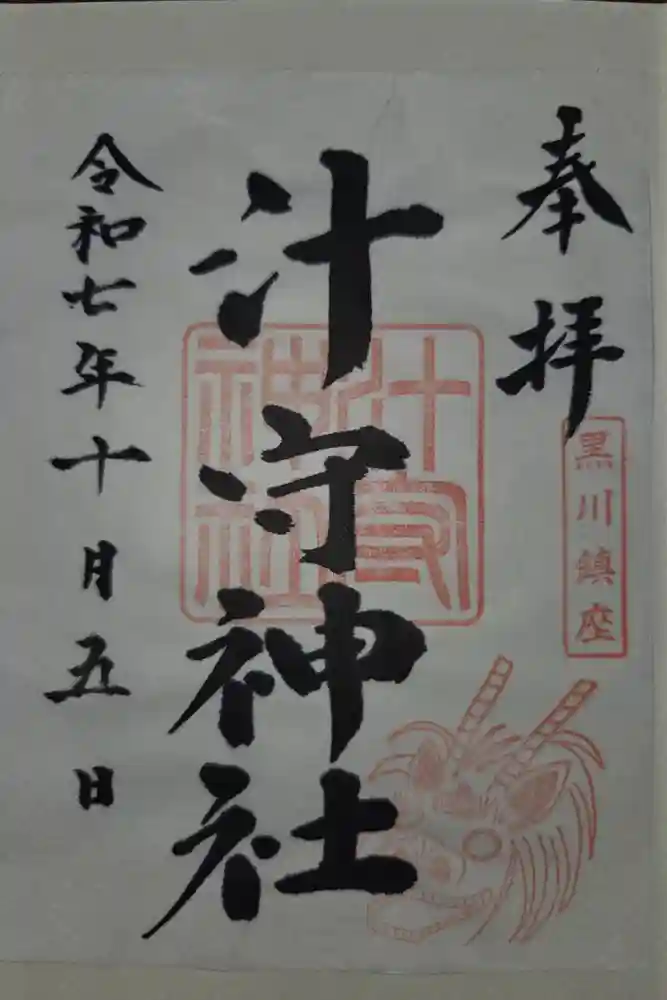 奉拝
黒川鎮座
汁守神社
汁守神社
令和七年十月五日